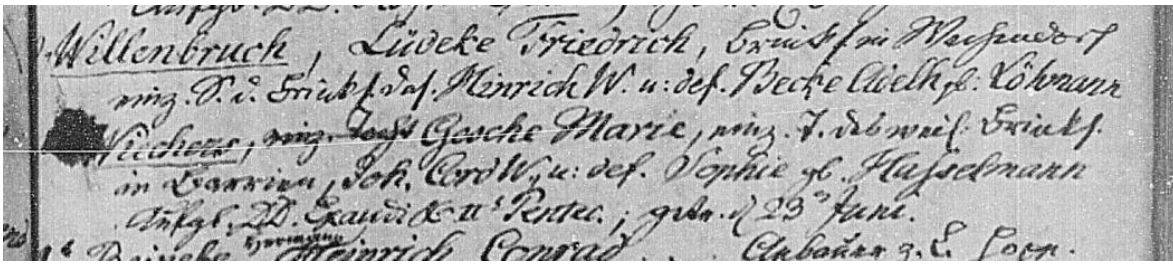 Willenbruch, Lüdeke Friedrich, Brinks. in Wachendorf
einz. S. d. Brinks. das. Hinrich W. u: des. Becke Adelh. gb. Löhmann
Wiechers, einz. Gesche Marie, einz. T. des weil. Brinks.
in Barrien, Joh. Cord W. u: des. Sophie gb. Hasselmann
Aufgb. DD. Exaudi & IIs Pentec., getr. d 23n Juni.
Hermann
Reineke Heinrich Conrad Anbauer z.